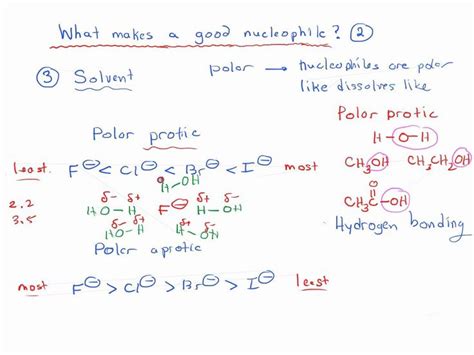 What makes a good nucleophile? ②
③ Solvent
polar → nucleophiles are polar
like dissolves like
Polar protic
H-O-H
CH₃OH CH₃CH₂OH
O
CH₃C-OH
Hydrogen bonding
Polar protic
least F⊖ < Cl⊖ < Br⊖ < I⊖ most
H-OH
2.2 δ- δ+ δ- δ+
3.5 H O-H F⊖ H-OH
δ- δ+ δ+ δ-
H-OH H-OH
Polar aprotic
most F⊖ > Cl⊖ > Br⊖ > I⊖ least